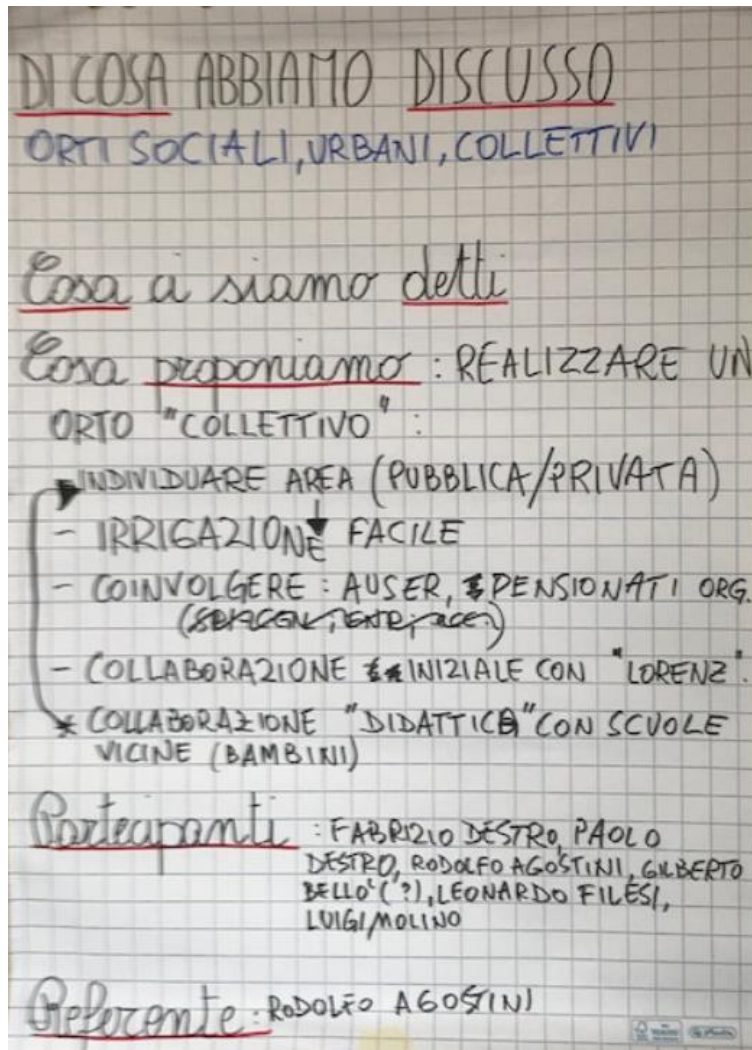 DI COSA ABBIAMO DISCUSSO
ORTI SOCIALI, URBANI, COLLETTIVI
Cosa ci siamo detti
Cosa proponiamo : REALIZZARE UN
ORTO "COLLETTIVO" :
INDIVIDUARE AREA (PUBBLICA/PRIVATA)
- IRRIGAZIONE FACILE
- COINVOLGERE : AUSER, PENSIONATI ORG.
- COLLABORAZIONE INIZIALE CON "LORENZ".
* COLLABORAZIONE "DIDATTICA" CON SCUOLE
VICINE (BAMBINI)
Partecipanti : FABRIZIO DESTRO, PAOLO
DESTRO, RODOLFO AGOSTINI, GILBERTO
BELLO' (?), LEONARDO FILESI,
LUIGI MOLINO
Referente : RODOLFO AGOSTINI